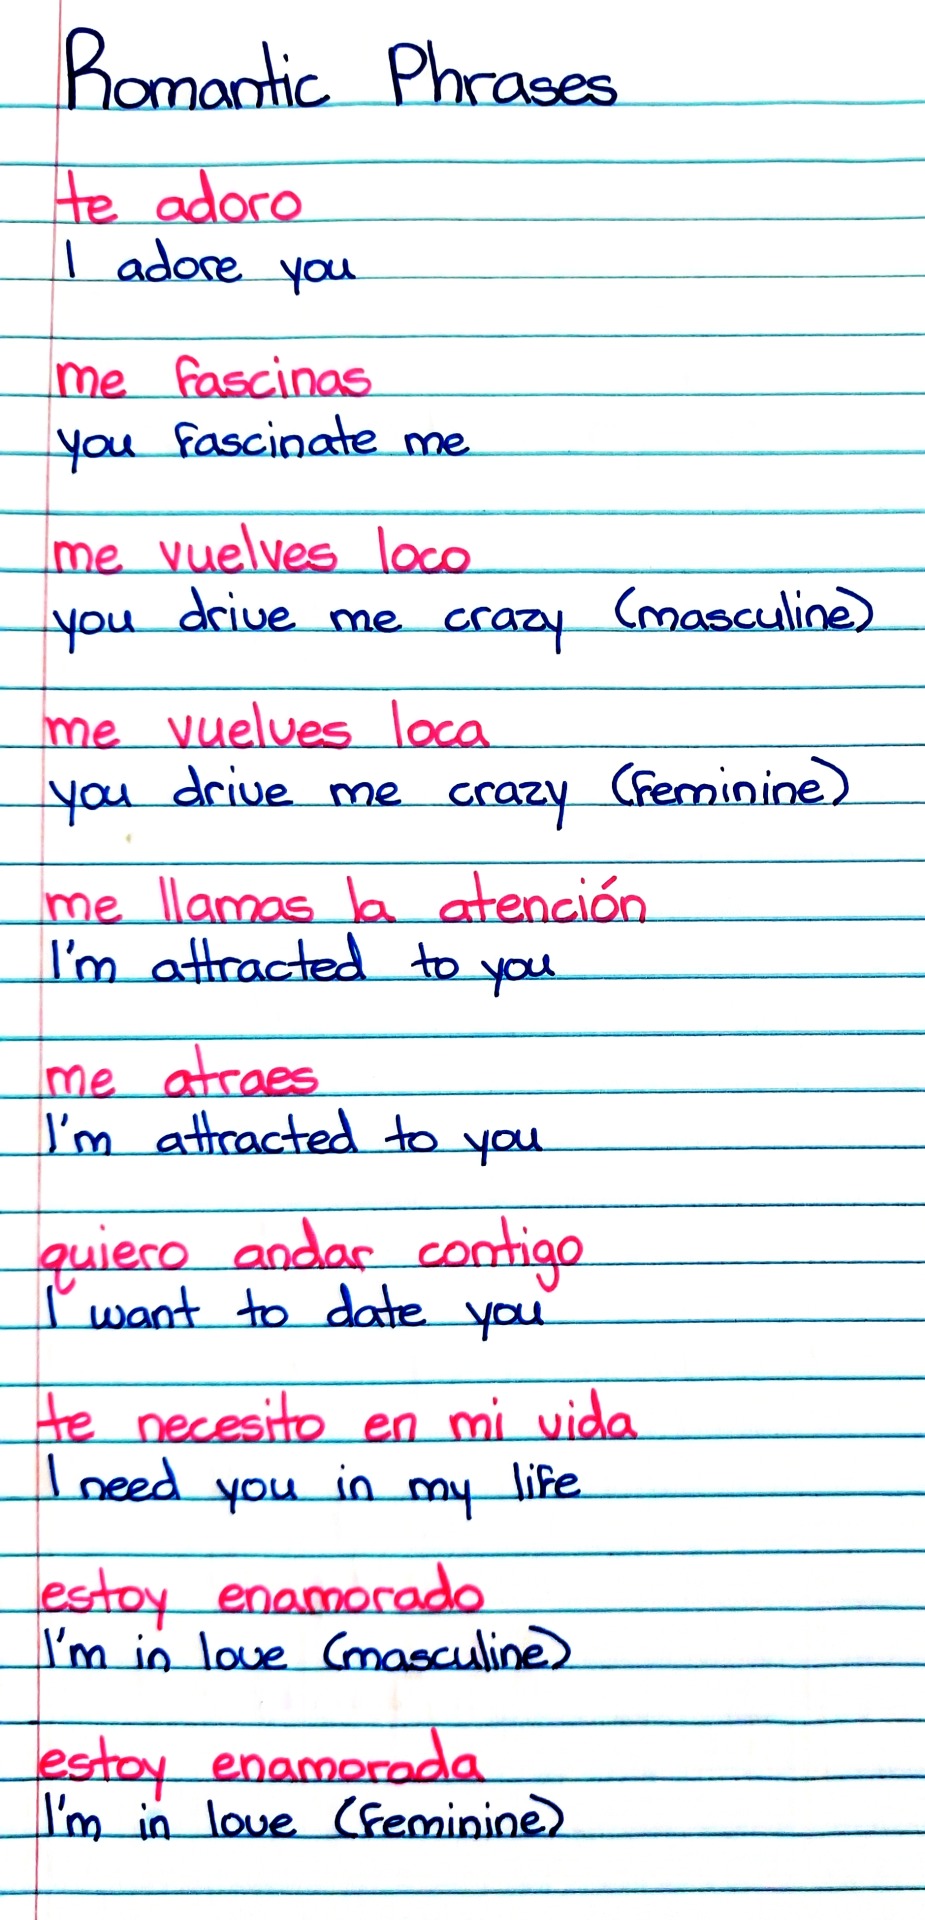 Romantic Phrases
te adoro
I adore you
me fascinas
you fascinate me
me vuelves loco
you drive me crazy (masculine)
me vuelves loca
you drive me crazy (feminine)
me llamas la atención
I'm attracted to you
me atraes
I'm attracted to you
quiero andar contigo
I want to date you
te necesito en mi vida
I need you in my life
estoy enamorado
I'm in love (masculine)
estoy enamorada
I'm in love (feminine)